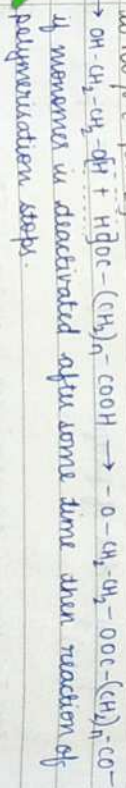 → OH-CH₂-CH₂-OH + HOOC-(CH₂)ₙ-COOH → -O-CH₂-CH₂-OOC-(CH₂)ₙ-CO-
if monomer is deactivated after some time then reaction of
polymerisation stops.